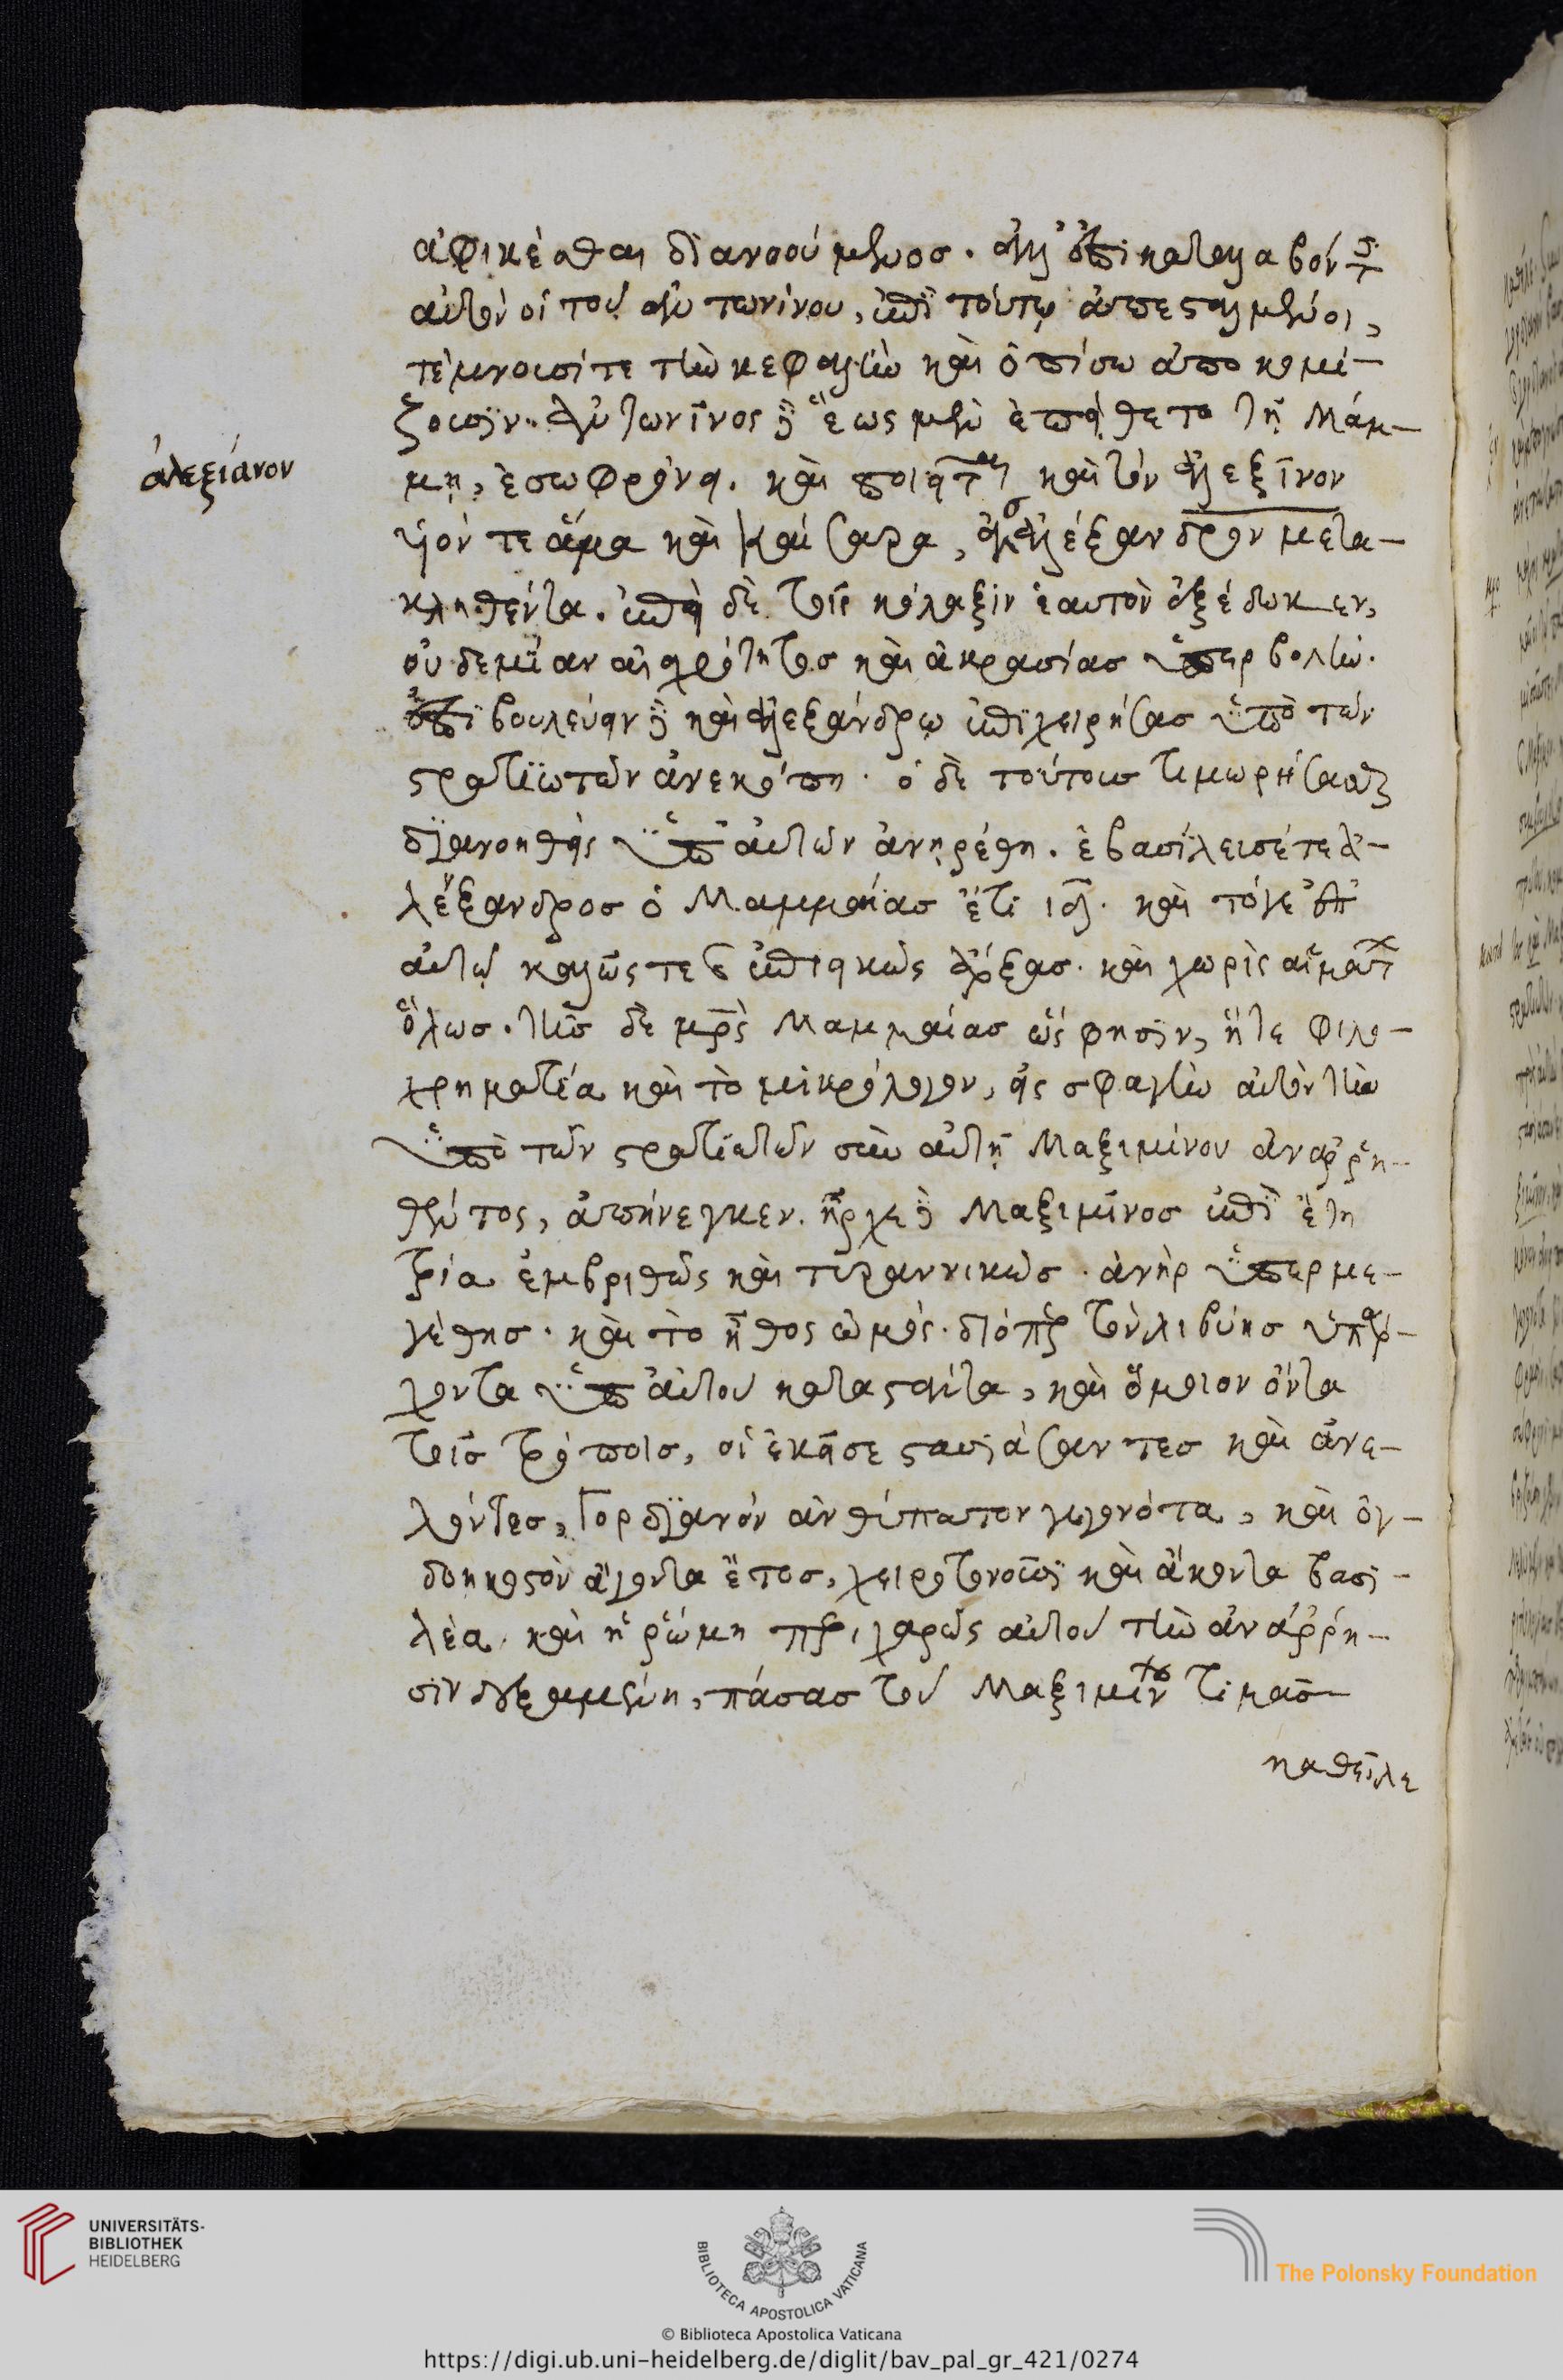 ἀφικέσθαι διανοούμενος. ἀλλ' ἐπικαταλαβόντες
αὐτὸν οἱ τοῦ ἀντωνίνου, ἐπὶ τούτῳ ἀπεσταλμένοι,
τέμνουσί τε τὴν κεφαλὴν καὶ ὀπίσω ἀποκομί-
ζουσιν. ἀντωνῖνος δὲ ἕως μὲν ἐπείθετο τῇ Μάμ-
μῃ, ἐσωφρόνει. καὶ ποιεῖται καὶ τὸν ἀλεξῖνον
ἀλεξιάνον
υἱόν τε ἅμα καὶ Καίσαρα, ἀλέξανδρον μετα-
κληθέντα. ἐπεὶ δὲ τοῖς κόλαξιν ἑαυτὸν ἐξέδωκεν,
οὐδεμίαν αἰσχρότητος καὶ ἀκρασίας ὑπερβολήν.
ἐπιβουλεύειν δὲ καὶ ἀλεξάνδρῳ ἐπιχειρήσας ὑπὸ τῶν
στρατιωτῶν ἀνεκόπη. ὁ δὲ τούτους τιμωρήσασθαι
διανοηθεὶς ὑπ' αὐτῶν ἀνῃρέθη. ἐβασίλευσέ τε ἀ-
λέξανδρος ὁ Μαμμαίας ἔτη ιδ. καὶ τό γε ἐπ'
αὐτῷ καλῶς τε καὶ ἐπιεικῶς ἄρξας. καὶ χωρὶς αἵματος
ὅλως. τῆς δὲ μητρὸς Μαμμαίας ὥς φησιν, ἥ τε φιλο-
χρηματία καὶ τὸ μικρόλογον, εἰς σφαγὴν αὐτὸν τὴν
ὑπὸ τῶν στρατιωτῶν σὺν αὐτῇ Μαξιμίνου ἀναρρη-
θέντος, ἀπήνεγκεν. ἦρχε δὲ Μαξιμῖνος ἐπὶ ἔτη
τρία ἐμβριθῶς καὶ τυραννικῶς. ἀνὴρ ὑπερμε-
γέθης. καὶ τὸ ἦθος ὠμός. διόπερ τὸν λιβύης ὑπάρ-
χοντα ὑπ' αὐτοῦ καταστάντα, καὶ ὅμοιον ὄντα
τοῖς τρόποις, οἱ ἐκεῖσε στασιάσαντες καὶ ἀνε-
λόντες, Γορδιανὸν ἀνθύπατον γεγονότα, καὶ ὀγ-
δοηκοστὸν ἄγοντα ἔτος, χειροτονοῦσι καὶ ἄκοντα βασι-
λέα. καὶ ἡ ῥώμη περιχαρῶς αὐτοῦ τὴν ἀνάρρη-
σιν δεξαμένη, πάσας τοῦ Μαξιμίνου τιμὰς
καθεῖλε
UNIVERSITÄTS-
BIBLIOTHEK
HEIDELBERG
BIBLIOTECA APOSTOLICA VATICANA
The Polonsky Foundation
© Biblioteca Apostolica Vaticana
https://digi.ub.uni-heidelberg.de/diglit/bav_pal_gr_421/0274